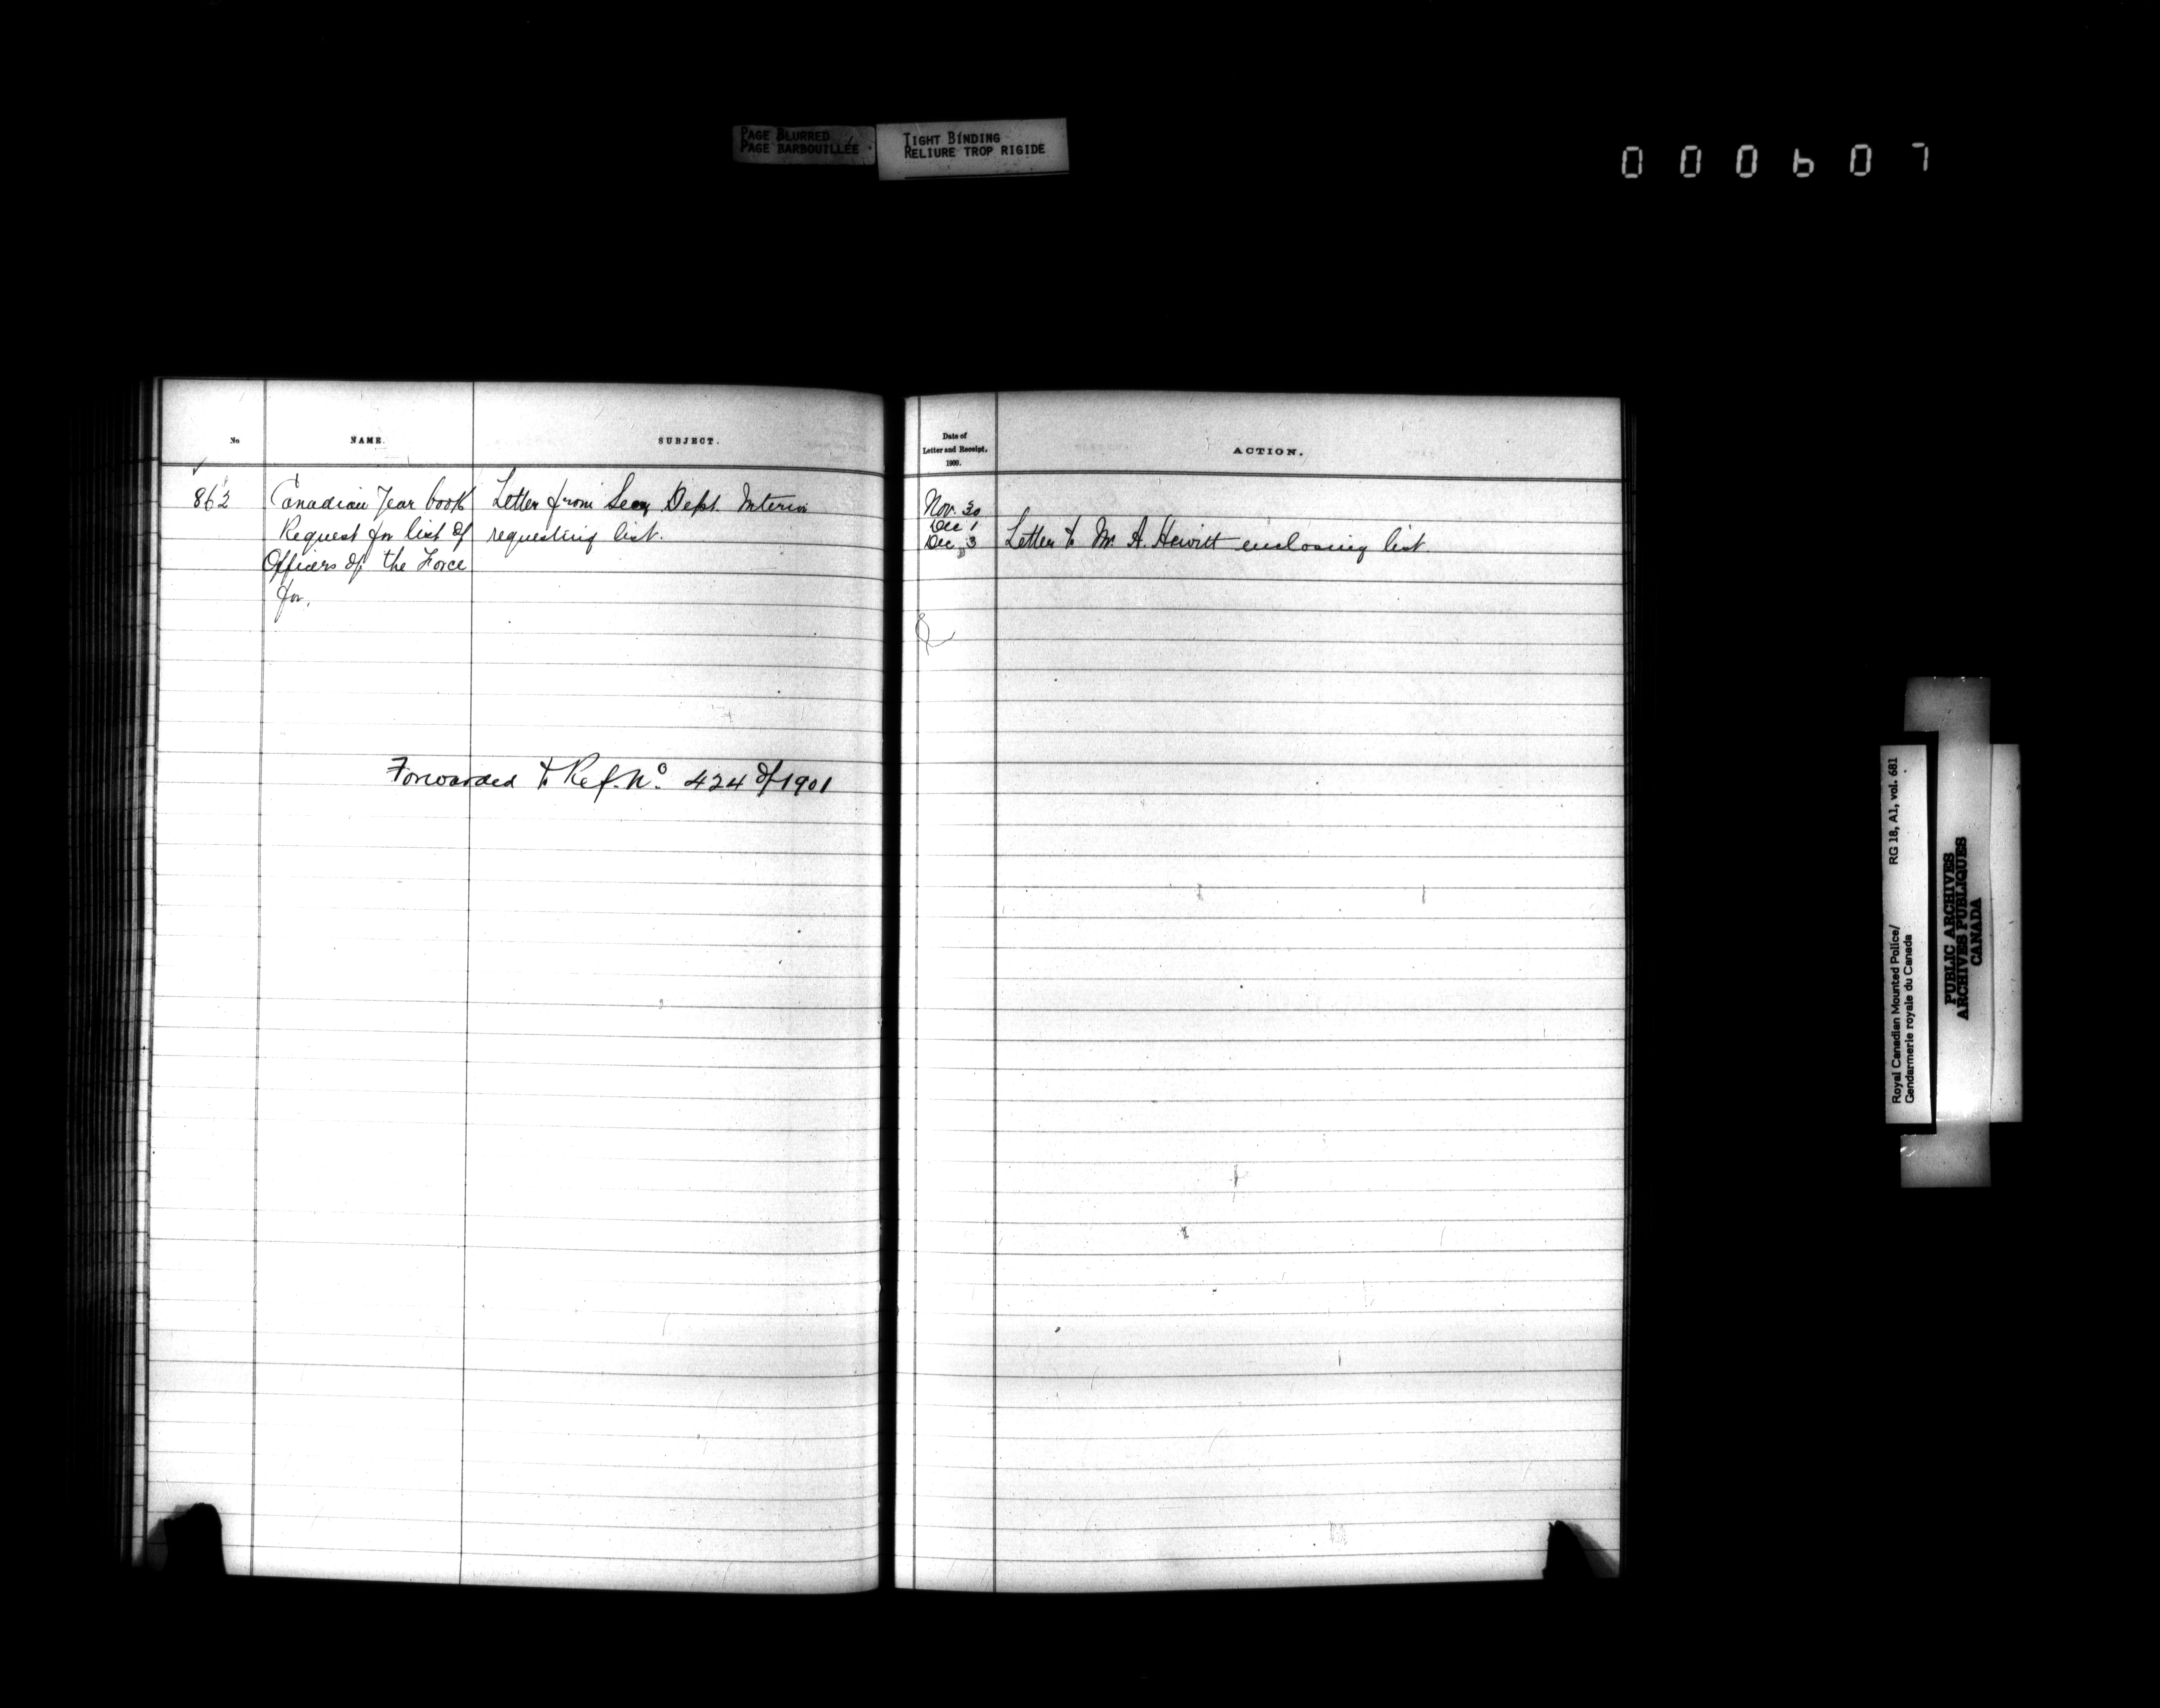 PAGE BLURRED
PAGE BARBOUILLÉE
TIGHT BINDING
RELIURE TROP RIGIDE
000607
No
NAME.
SUBJECT.
862
Canadian Year book
Request for list of
Officers of the Force
for.
Letter from Secy Dept. Interior
requesting list.
Forwarded to Ref. No. 424 of 1901
Date of
Letter and Receipt,
1900.
ACTION.
Nov. 30
Dec 1
Dec 3
Letter to Mr A. Hewitt enclosing list.
Royal Canadian Mounted Police/
Gendarmerie royale du Canada
RG 18, A1, vol. 681
PUBLIC ARCHIVES
ARCHIVES PUBLIQUES
CANADA